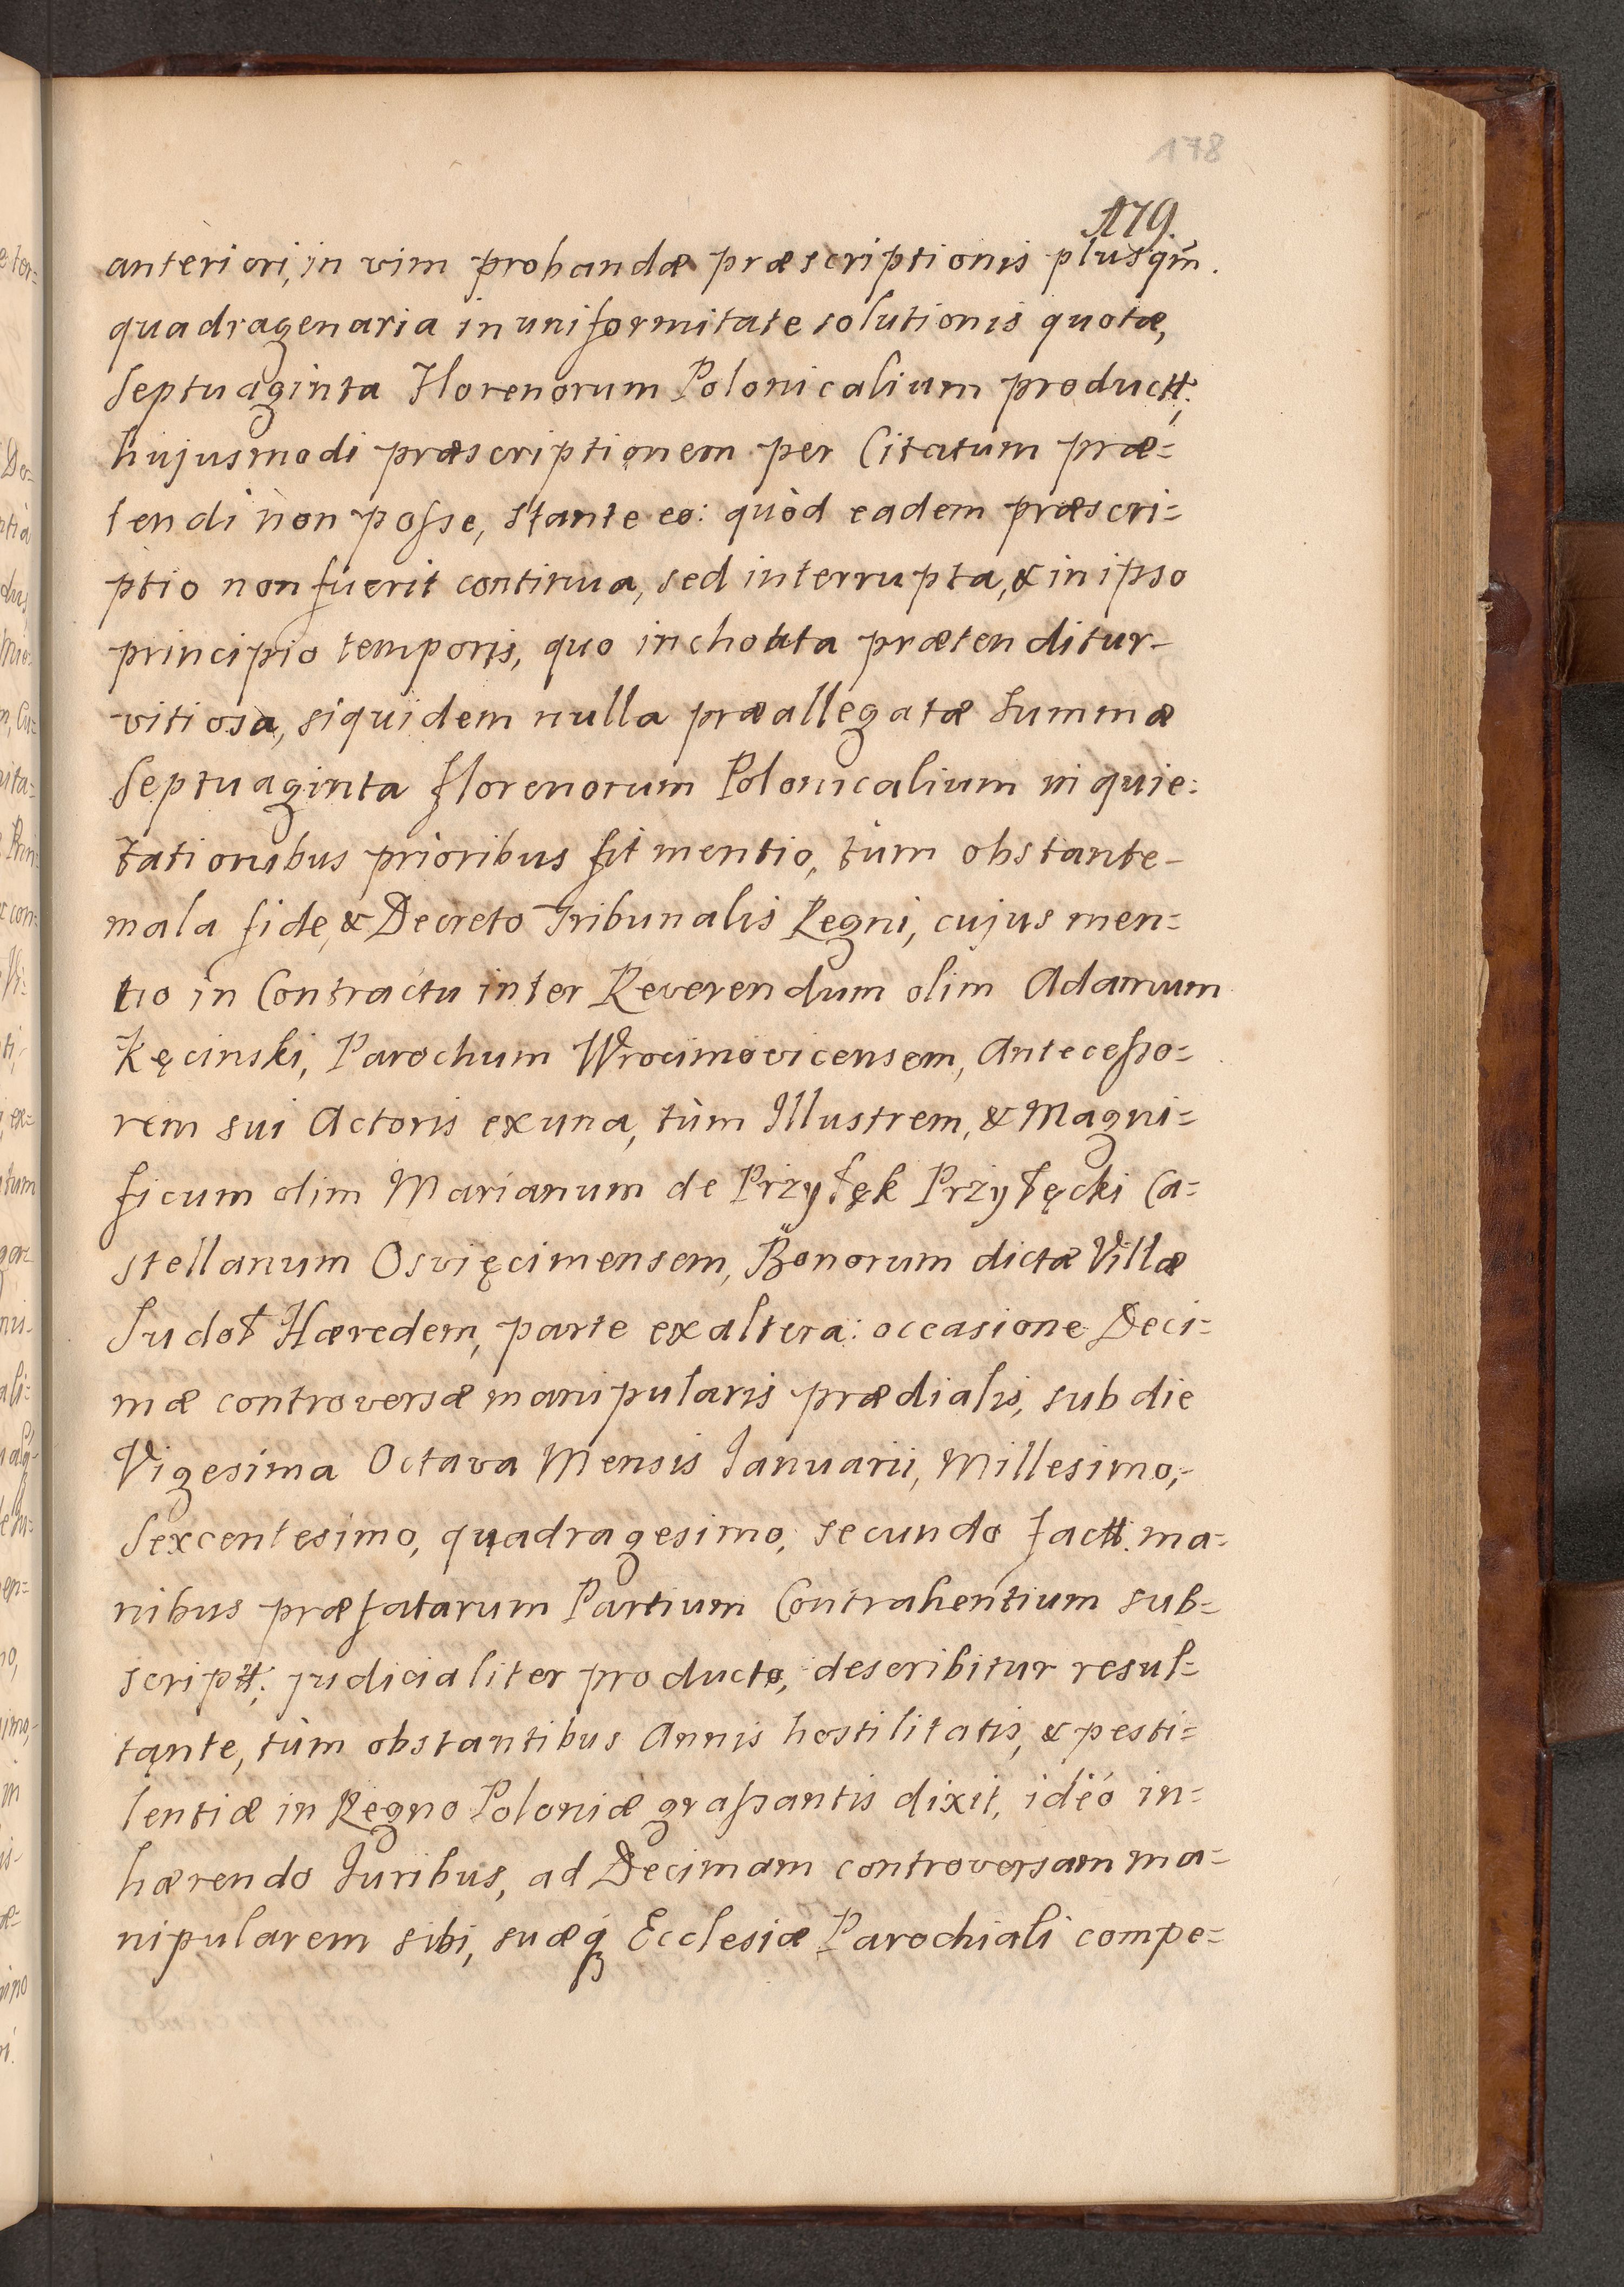 178
179.
anteriori, in vim probandæ præscriptionis plusqm̃.
quadragenaria in uniformitate solutionis quotæ,
Septuaginta Florenorum Polonicalium productt;
hujusmodi præscriptionem per Citatum præ=
tendi non posse, stante eo: quòd eadem præscri=
ptio non fuerit continua, sed interrupta, & in ipso
principio temporis, quo inchoata prætenditur-
vitiosa, siquidem nulla præallegatæ Summæ
Septuaginta florenorum Polonicalium in quie=
tationibus prioribus fit mentio, tùm obstante-
mala fide, & Decreto Tribunalis Regni, cujus men=
tio in Contractu inter Reverendum olim Adamum
Kęcinski, Parochum Wrocimovicensem, Antecesso=
rem sui Actoris ex una, tùm Illustrem, & Magni=
ficum olim Marianum de Przyłęk Przyłęcki Ca=
stellanum Osvięcimensem, Bonorum dictæ Villæ
Sudoł Hæredem, parte ex altera: occasione Deci=
mæ controversæ manipularis prædialis, sub die
Vigesima Octava Mensis Januarii, Millesimo,-
Sexcentesimo, quadragesimo, secundo factt. ma=
nibus præfatarum Partium Contrahentium sub=
scriptt; judicialiter producto, describitur resul=
tante, tùm obstantibus Annis hostilitatis, & pesti=
lentiæ in Regno Poloniæ grassantis dixit, idéo in=
hærendo Juribus, ad Decimam controversam ma=
nipularem sibi, suæq3 Ecclesiæ Parochiali compe=